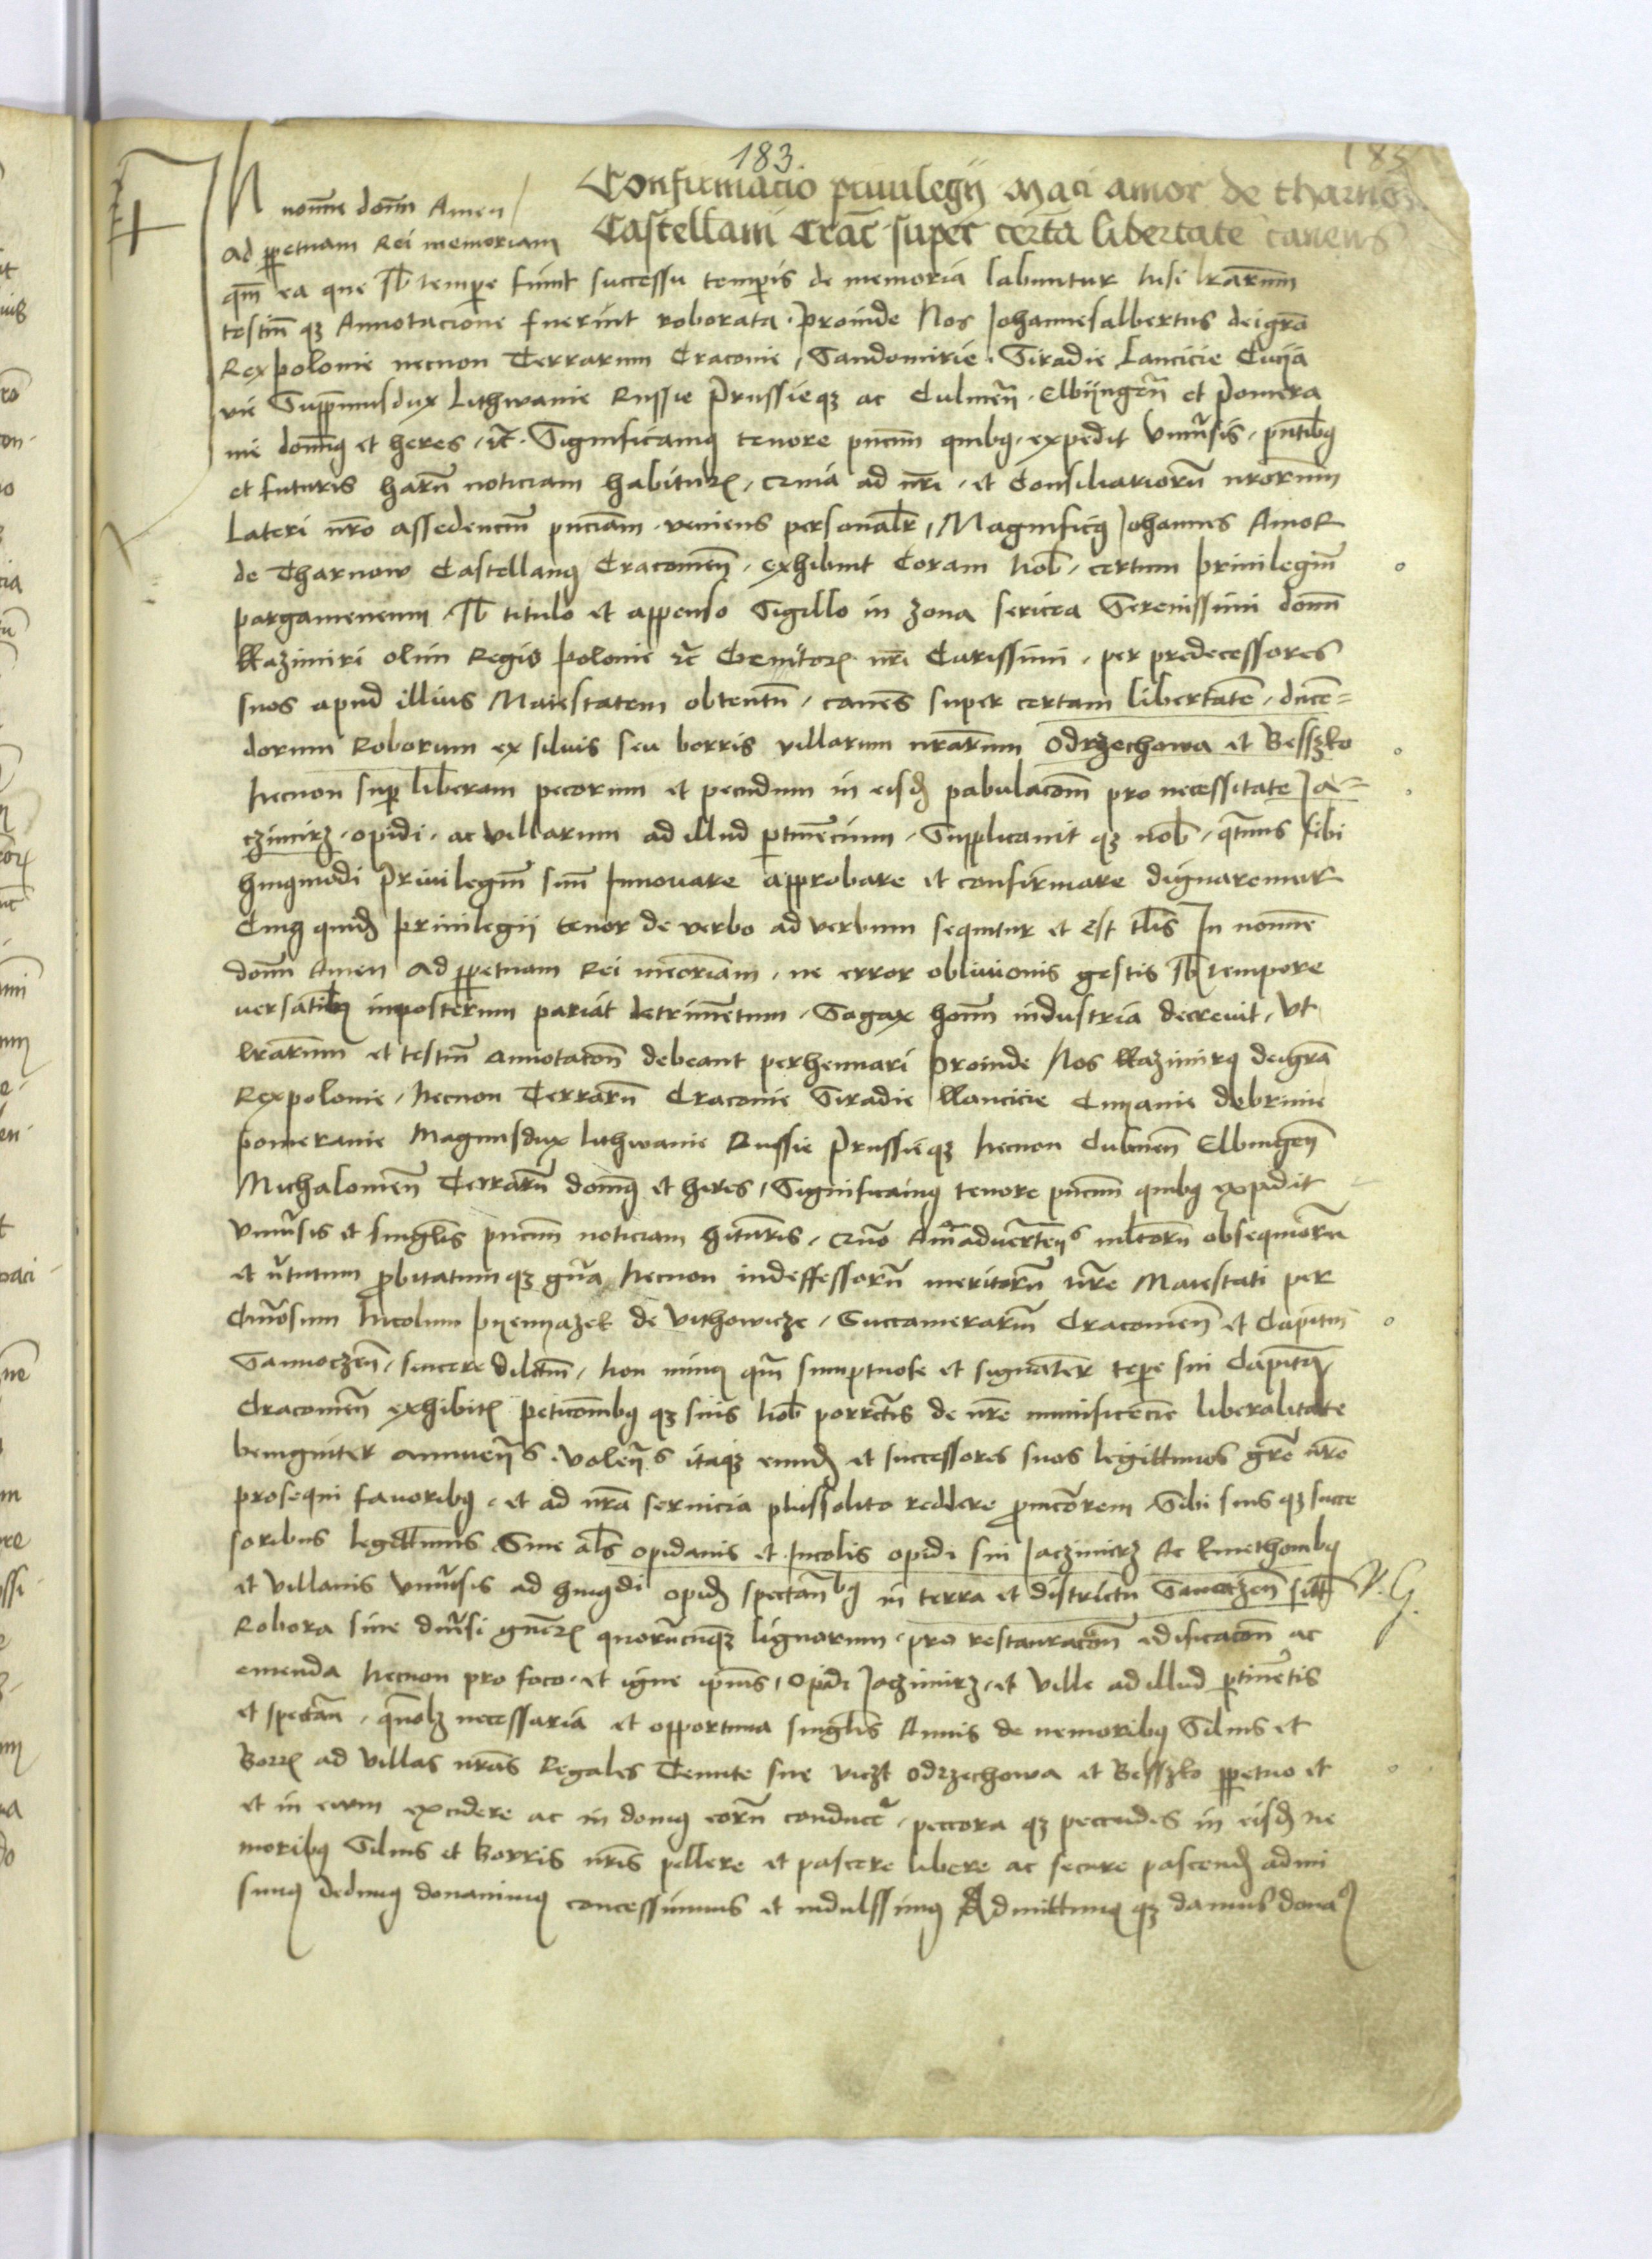 183.
183
Confirmacio privilegij Mści amor de tharnow
Castellani Crac̃ super certa libertate canens
In nomĩe domĩ Amen
Ad ppetuam Rei memoriam
qm̃ ea que sb tempe fiunt successu temporis de memoria labuntur nisi lrarum
testiũ qz Annotacione fuerint roborata. Proinde Nos Johannesalbertus dei grã
Rex polonie necnon Terrarum Cracouie, Sandomirie. Siradie Lancicie Cuya
vie Suppremusdux Lithwanie Russie Prussieqz ac Culmeñ. Elbijngeñ et Pomera
nie domiꝰ et heres, ꝛc̃. Significamꝰ tenore pñcium quibꝰ. expedit vniũsis, pñtibꝰ
et futuris harũ noticiam habiturꝭ, Quia ad nr̃i. et Consiliariorũ nrorum
Lateri nr̃o assedenciũ pñciam. veniens personalr, Magnificꝰ Johannes Amor
de Tharnow Castellanꝰ Cracouieñ. exhibuit Coram nob. certum priuilegiũ
pargameneum. sb titulo et appenso Sigillo in zona sericea Serenissimi domĩ
Kazimiri olim Regis polonie ꝛc̃ Genitorꝭ nr̃i Carissimi. per predecessores
suos apud illius Maiestatem obtentũ, canens super certam libertatẽ, ducẽ=
dorum Roborum ex siluis seu borris villarum nrarum Odrzechowa et Besszko
necnon sup liberam pecorum et pecudum in eisd pabulacoñ pro necessitate Ja=
czimirz. opidi. ac villarum ad illud ptinẽcium. Supplicauit qz nob. qtinus sibi
huiꝰmodi Priuilegiũ suũ Innouare approbare et confirmare dignaremur
Cuiꝰ quid priuilegij tenor de verbo ad verbum sequitur et est tlis In nomĩe
domĩ Amen Ad ppetuam Rei meoriam. ne error obliuionis gestis sb tempore
versatibꝰ inposterum pariat detrimẽtum. Sagax homĩ industria decreuit, vt
lrarum et testiũ annotacoñ debeant perhennari Proinde Nos Kazimirꝰ dei grã
Rex polonie, Necnon Terrarũ Cracouie Siradie Lancicie Cuyauie dobrinie
pomeranie Magnusdux lithwanie Russie Prussieqz Necnon Culmeñ Elbingeñ
Michalouieñ Terrarũ domiꝰ et heres, Significamꝰ tenore pñcium quibꝰ expedit
vniũsis et singlis pñcium noticiam hituris, Quo Amaduertenꝭ mltorũ obsequiorũ
et ũtutum probitatum qz gña Necnon indeffessorũ meritorũ nr̃e Maiestati per
Gñosum Nicolaum pyenyazek de Vithowicze, Succamerariũ Cracouieñ et Capitũ
Sannoczeñ. sincere dilctm̃. non minꝰ qm̃ sumptuose et signãter tpe sui Capitã
Cracouieñ exhibitꝭ peticonibꝰ qz suis nob porrectis de nr̃e munificẽcie liberalitate
benigniter annuenꝭ. volenꝭ itaqz eund et successores suos legittimos grẽ nr̃e
prosequi fauoribꝰ. et ad nr̃a seruicia plussolito reddere pmcõrem. Sibi suis qz succe
soribus legittimis Siue als opidanis et Incolis opidi sui Jaczimirz Ac kmethonibꝰ
et villanis vniũsis ad huiꝰdi opid spectañbꝰ in terra et districtu Sanoczeñ sitt N. G.
Robora siue diũsi gñerꝭ quorũcũqz lignorum. pro restauracoñ edificacoñ ac
emenda Necnon pro foco. et igne ipius, Opidi Jaczimirz, et ville ad illud ptinẽtis
et spectañ. quõlz necessaria et opportuna singlis Annis de nemoribꝰ Siluis et
Borrꝭ ad villas nr̃as Regales Tenute sue viczt Odrzechowa et Besszko ppetuo et
et in ewm excidere ac in domꝰ eorũ conducer̃. peccora qz peccudes in eisd ne
moribꝰ Siluis et Borris nr̃is pellere et pascere libere ac secure pascend admi
simꝰ dedimꝰ donauimꝰ concessimus et indulssimꝰ Admittimꝰ qz damus donaꝰ